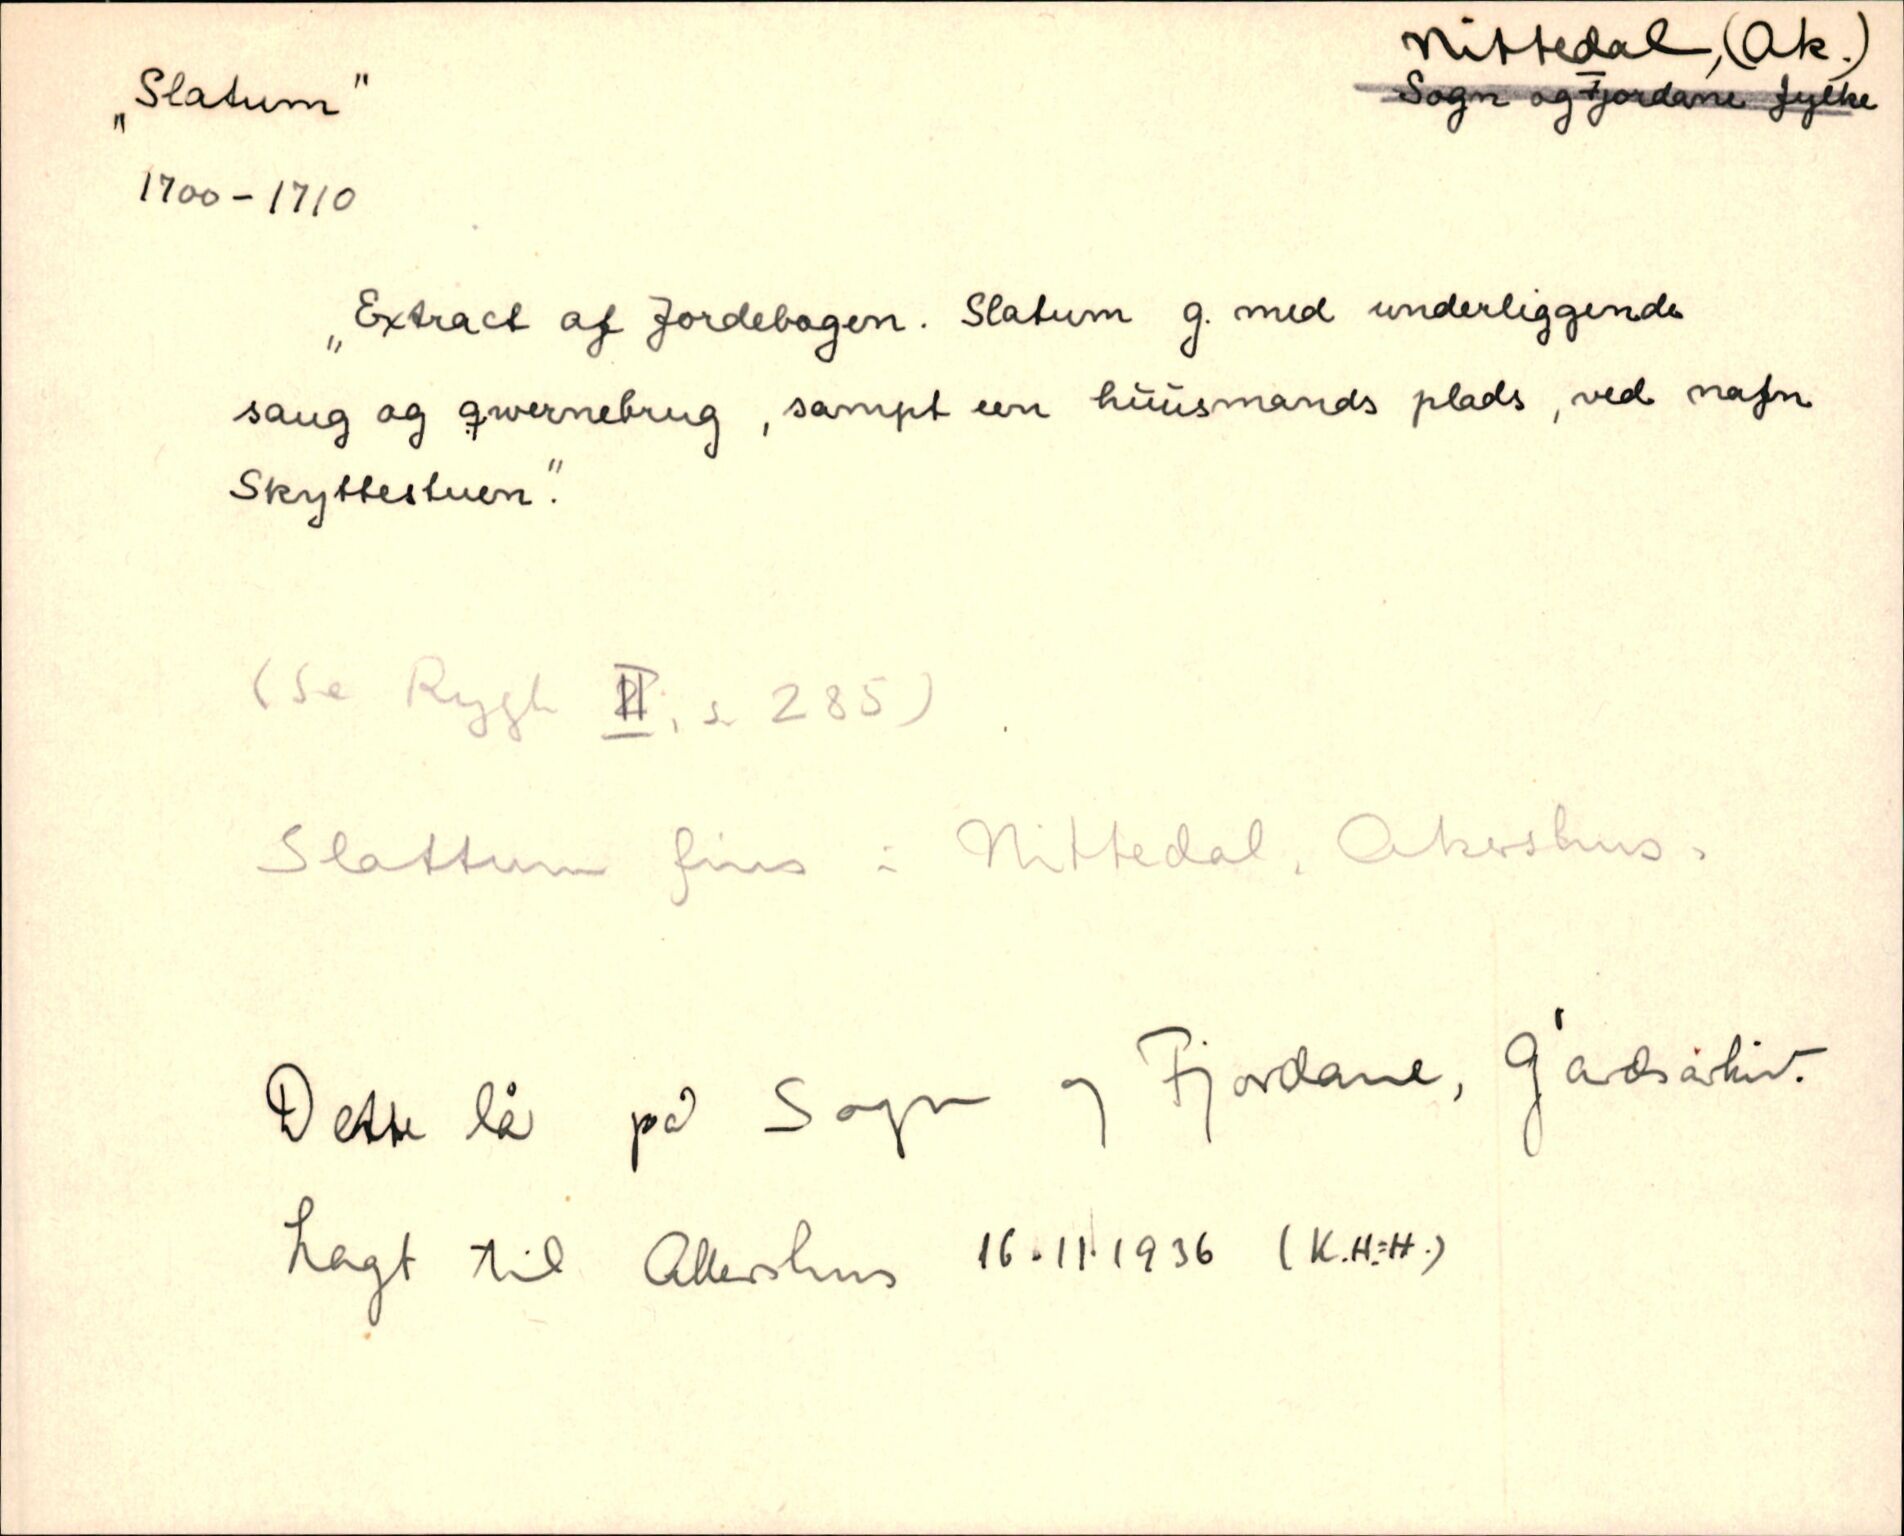 Nittedal, (Ak.)
Sogn og Fjordane fylke
„Slatum"
1700-1710
„Extract af Jordebogen. Slatum g. med underliggende
saug og qwernebrug, sampt een hüüsmands plads, ved nafn
Skyttestuen".
(Se Rygh II, s. 285)
Slattum fins i Nittedal, Akershus.
Dette lå på Sogn og Fjordane, Gardsarkiv.
Lagt til Akershus 16.11.1936 (K.H=H.)